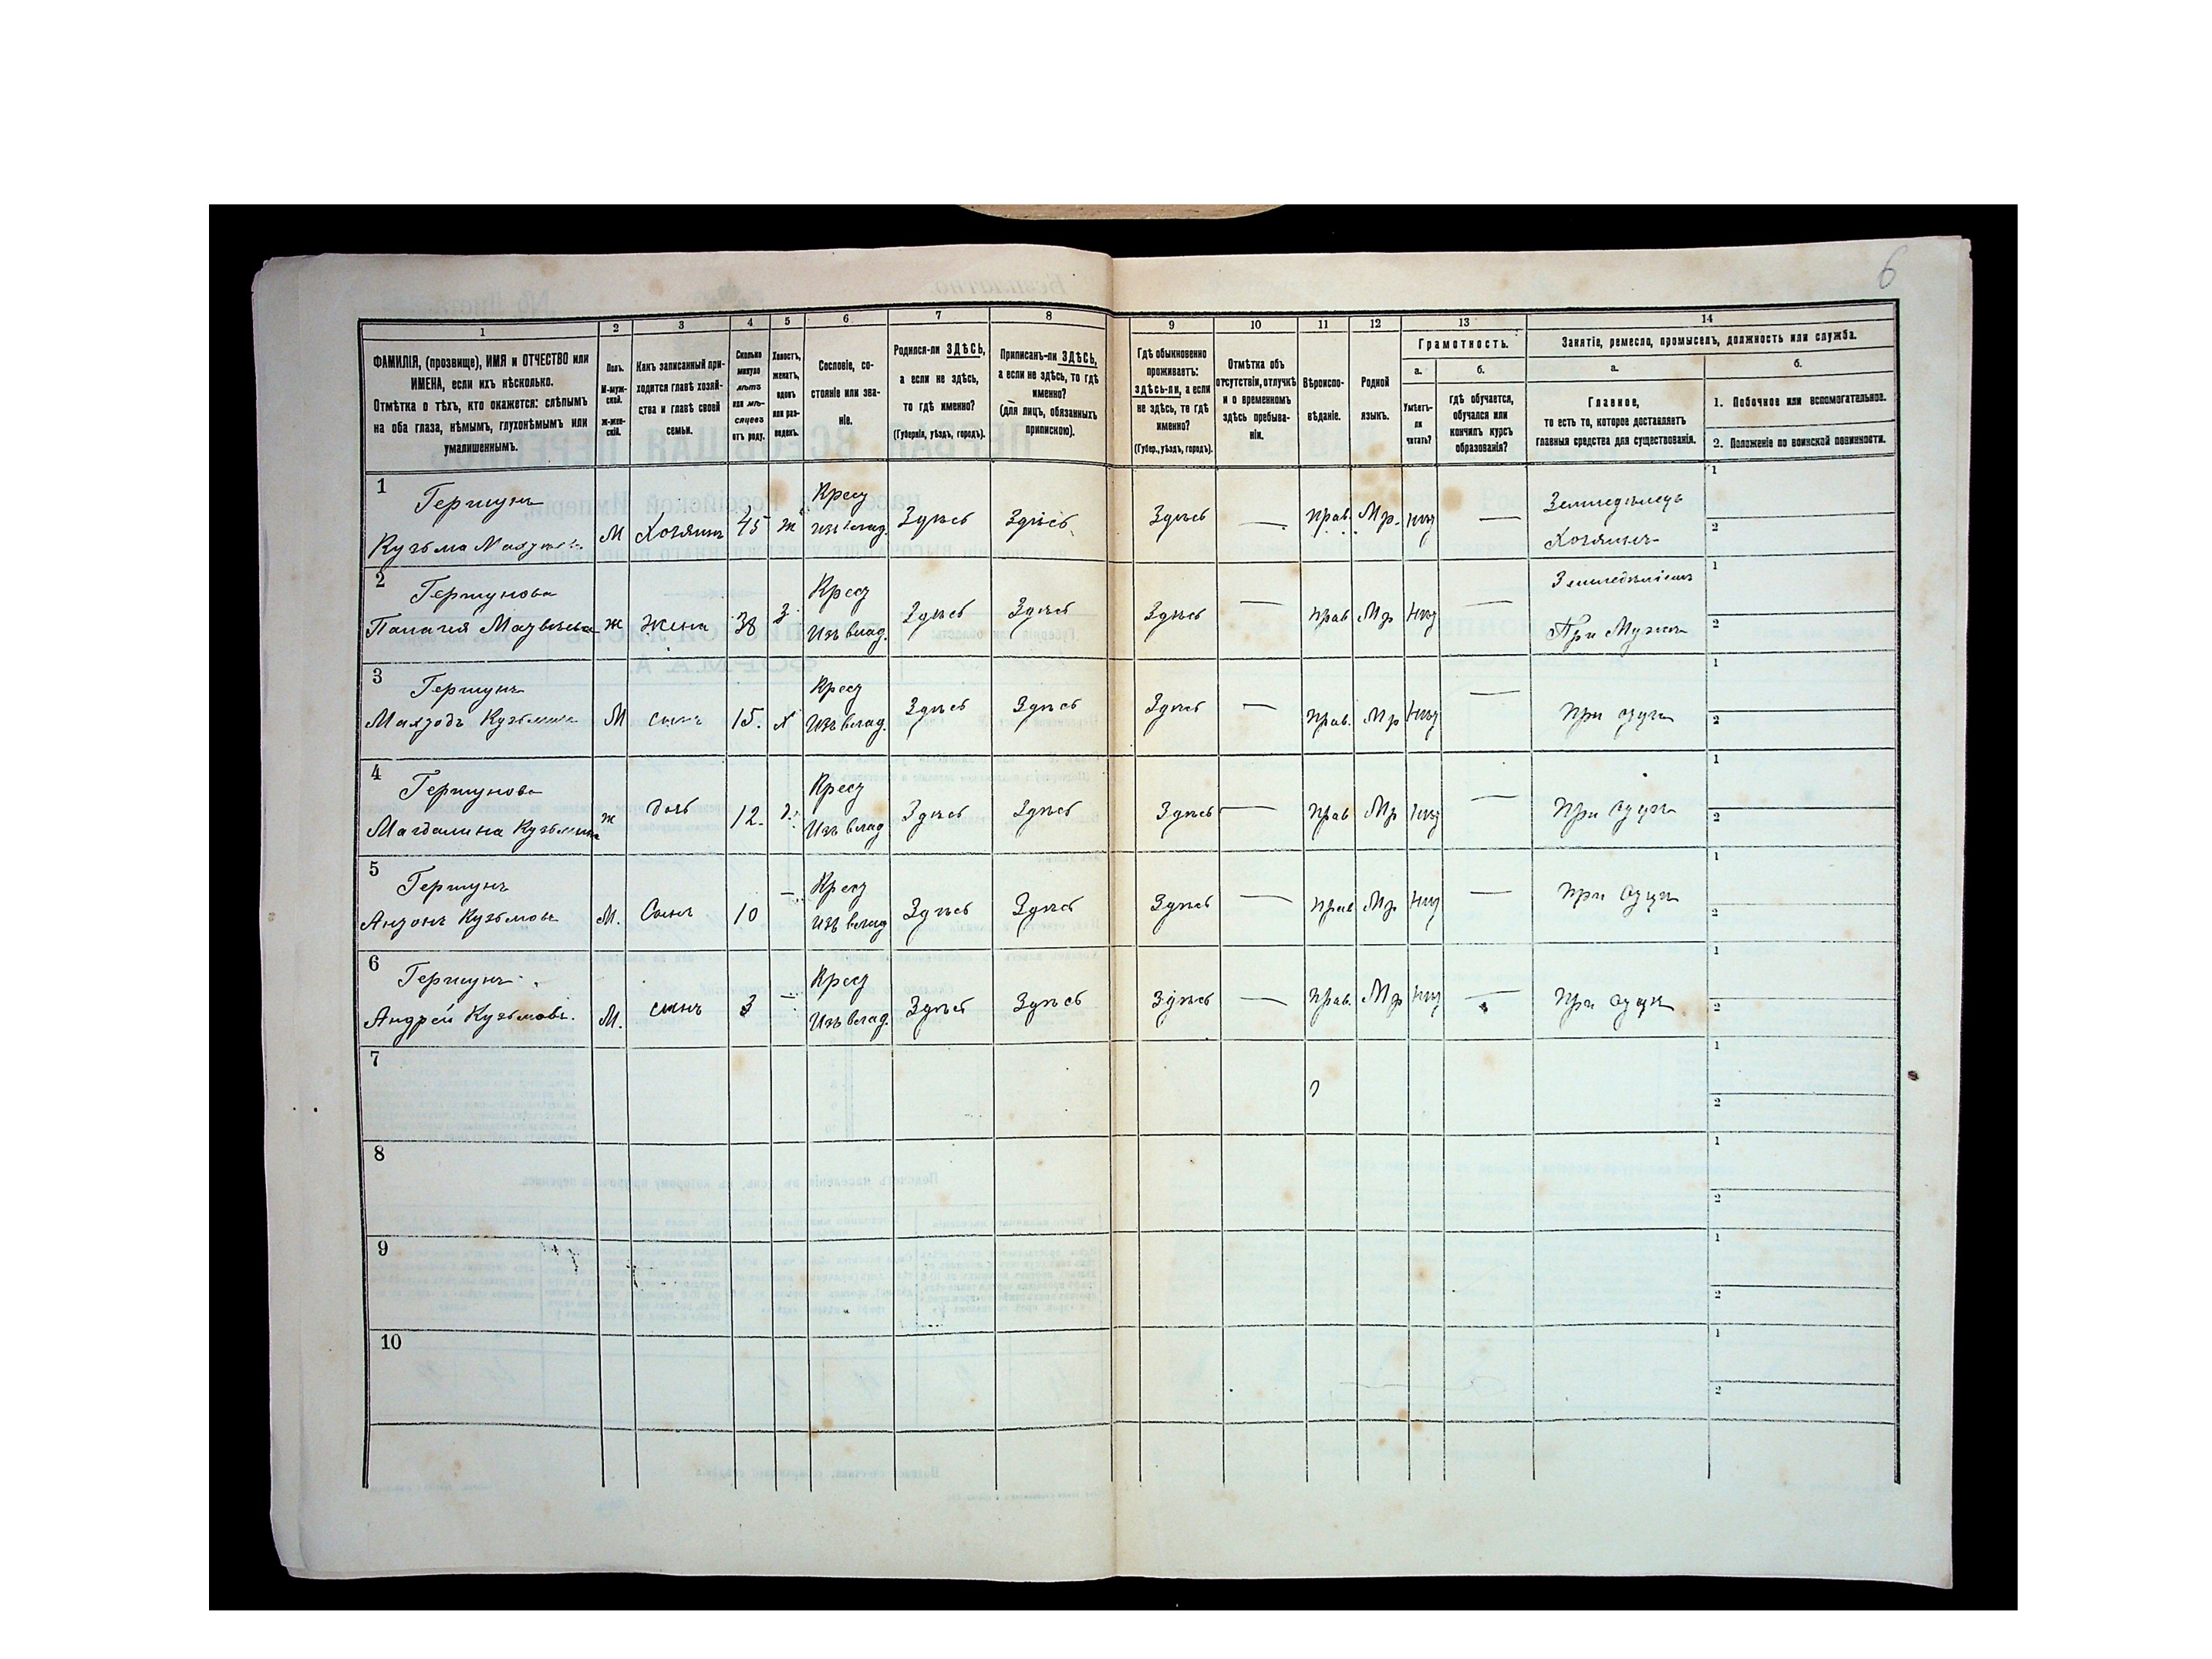 6
1 2 3 4 5 6 7 8 9 10 11 12 13 14
ФАМИЛІЯ, (прозвище), ИМЯ и ОТЧЕСТВО или
ИМЕНА, если ихъ нѣсколько.
Отмѣтка о тѣхъ, кто окажется: слѣпымъ
на оба глаза, нѣмымъ, глухонѣмымъ или
умалишеннымъ.
Полъ.
М-муж-
ской.
Ж-жен-
скій.
Какъ записанный при-
ходится главѣ хозяй-
ства и главѣ своей
семьи.
Сколько
минуло
лѣтъ
или мѣ-
сяцевъ
отъ роду.
Холостъ,
женатъ,
вдовъ
или раз-
веденъ.
Сословіе, со-
стояніе или зва-
ніе.
Родился-ли ЗДѢСЬ,
а если не здѣсь,
то гдѣ именно?
(Губернія, уѣздъ, городъ).
Приписанъ-ли ЗДѢСЬ,
а если не здѣсь, то гдѣ
именно?
(для лицъ, обязанныхъ
припискою).
Гдѣ обыкновенно
проживаетъ:
здѣсь-ли, а если
не здѣсь, то гдѣ
именно?
(Губер., уѣздъ, городъ).
Отмѣтка объ
отсутствіи, отлучкѣ
и о временномъ
здѣсь пребыва-
ніи.
Вѣроиспо-
вѣданіе.
Родной
языкъ.
Грамотность.
а.
Умѣетъ-
ли
читать?
б.
гдѣ обучается,
обучался или
кончилъ курсъ
образованія?
Занятіе, ремесло, промыселъ, должность или служба.
а.
Главное,
то есть то, которое доставляетъ
главныя средства для существованія.
б.
1. Побочное или вспомогательное.
2. Положеніе по воинской повинности.
1 Гершунъ Крест 1
Кузьма М Хозяинъ 45 ж изъ влад. Здѣсь Здѣсь Здѣсь — Прав. Мр. нѣт — Земледѣлецъ
Хозяинъ 2
2 Гершунова Крест Земледѣліемъ 1
Палагея Матвѣева Ж Жена 38 З. Изъ влад. Здѣсь Здѣсь Здѣсь — Прав Мр нѣт — При Мужѣ 2
3 Гершунъ Крест 1
М сынъ 15. Х Изъ влад. Здѣсь Здѣсь Здѣсь — Прав. Мр нѣт — При отцѣ 2
4 Гершунова Крест 1
Магдалина Кузьмина ж дочь 12. Изъ влад Здѣсь Здѣсь Здѣсь — Прав Мр нѣт — При отцѣ 2
5 Гершунъ Крест 1
Антонъ Кузьмовъ М. Сынъ 10 — Изъ влад Здѣсь Здѣсь Здѣсь — Прав Мр нѣт — При отцѣ 2
6 Гершунъ Крест 1
Андрей Кузьмовъ. М. сынъ 3 — Изъ влад. Здѣсь Здѣсь Здѣсь — Прав. Мр нѣт — При отцѣ 2
7 1
2
8 1
2
9 1
2
10 1
2